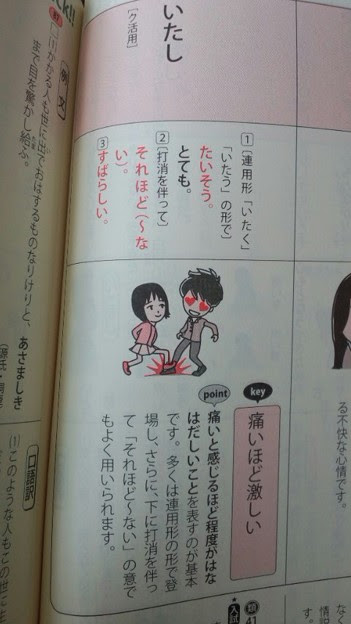 る不快な心情です。
いたし
[ク活用]
1〔連用形「いたく」
「いたう」の形で〕
たいそう。
とても。
2〔打消を伴って〕
それほど(〜な
い)。
3すばらしい。
key
痛いほど激しい
point
痛いと感じるほど程度がはな
はだしいことを表すのが基本
です。多くは連用形の形で登
場し、さらに、下に打消を伴っ
て「それほど〜ない」の意で
もよく用いられます。
なく
す。
類 41
入試
ck!!
例文
(1)かかる人も世に出でおはするものなりけりと、あさましき
まで目を驚かし給ふ。
口語訳
(1)このような人もこの世に